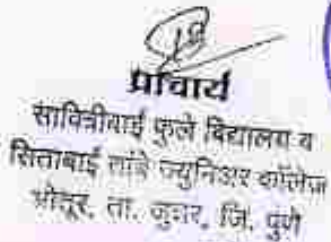 प्राचार्य
सावित्रीबाई फुले विद्यालय व
सिताबाई तांबे ज्युनिअर कॉलेज
ओतूर, ता. जुन्नर, जि. पुणे